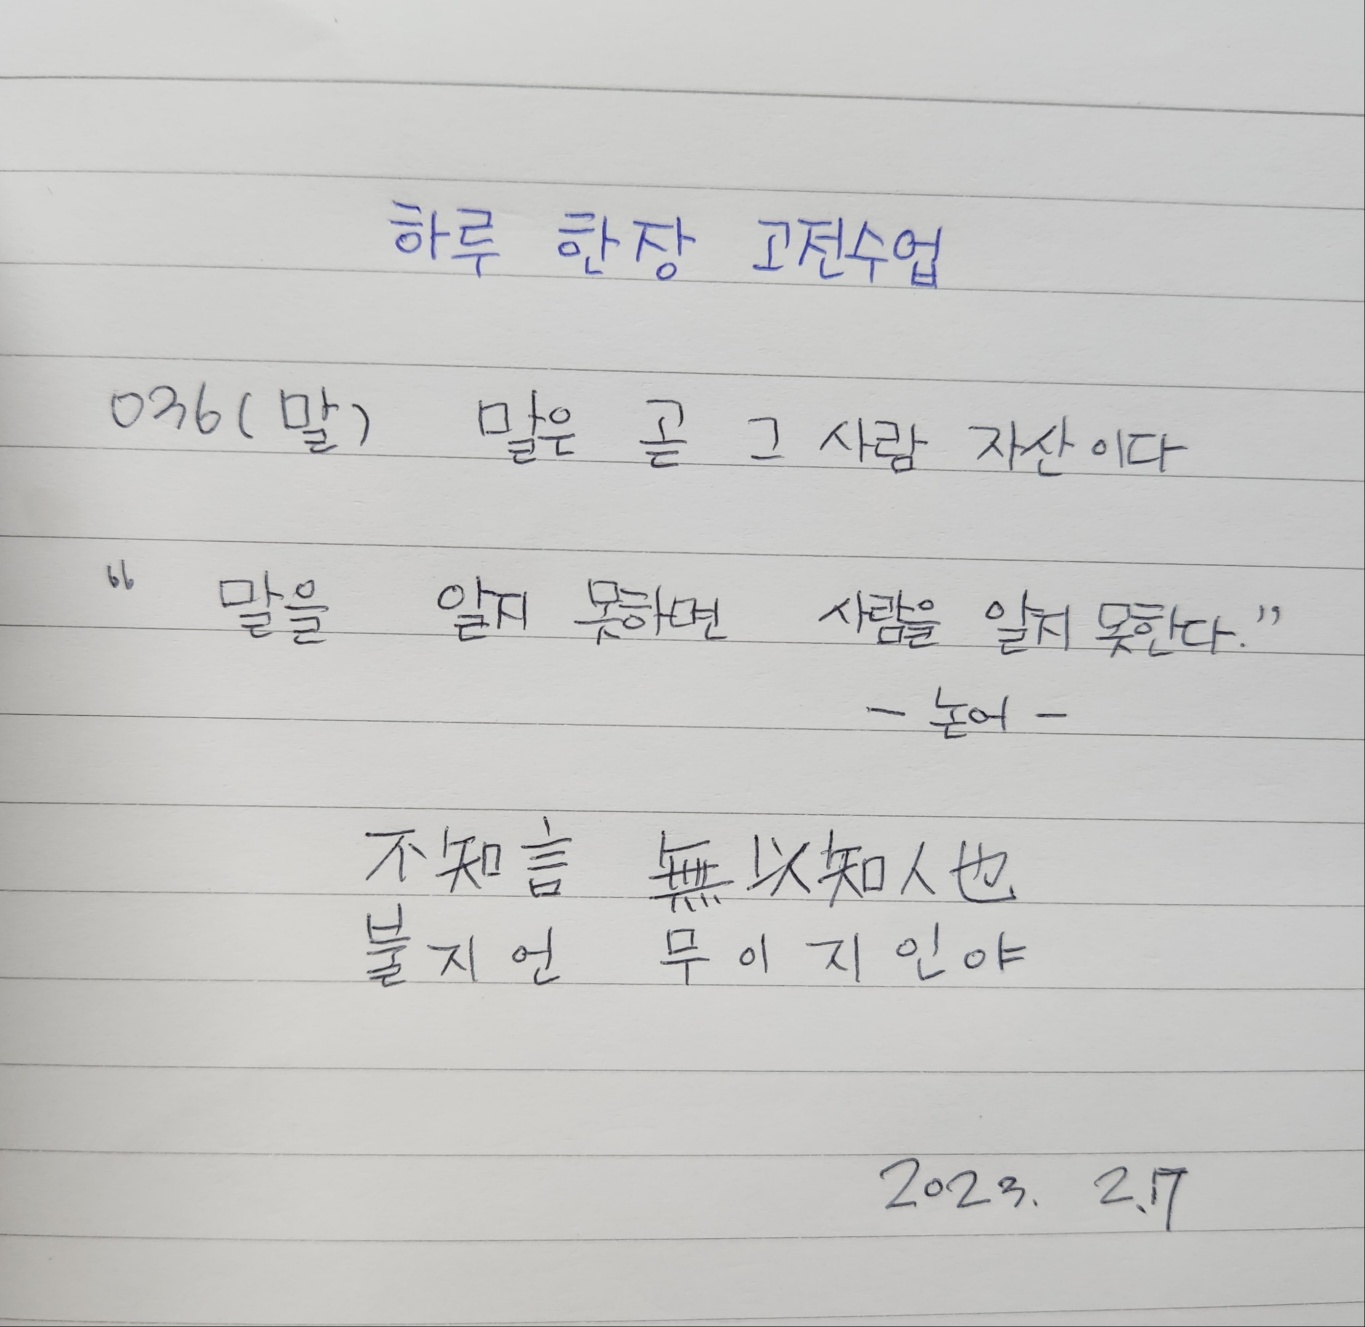 하루 한장 고전수업
036(말) 말은 곧 그 사람 자산이다
“말을 알지 못하면 사람을 알지 못한다.”
- 논어 -
不知言 無以知人也
불지언 무이지인야
2023. 2.17